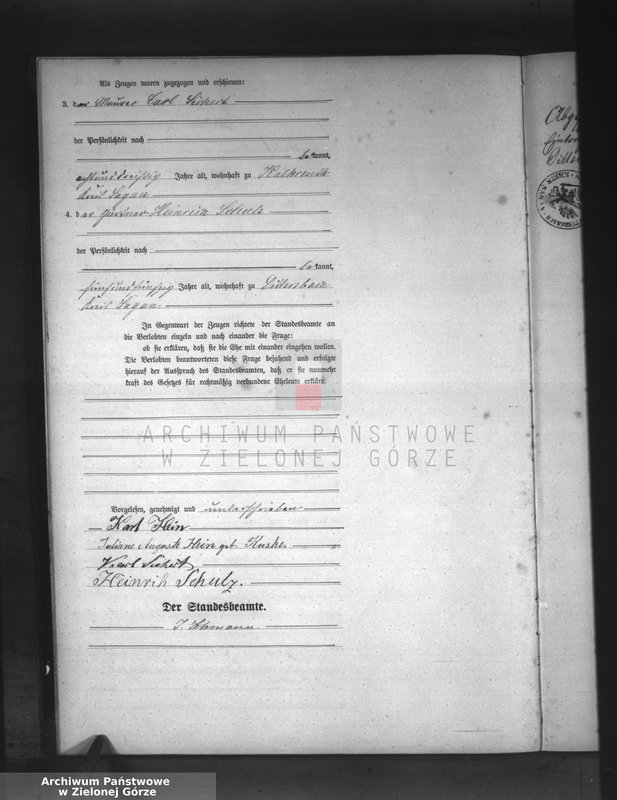 Als Zeugen waren zugezogen und erschienen:
3. der Maurer Carl Sickert
der Persönlichkeit nach
bekannt,
achtunddreißig Jahre alt, wohnhaft zu
Kreis Sagan
4. der Gärtner Heinrich Schulz
der Persönlichkeit nach
bekannt,
fünfundfünfzig Jahre alt, wohnhaft zu Dittersbach
Kreis Sagan.
In Gegenwart der Zeugen richtete der Standesbeamte an
die Verlobten einzeln und nach einander die Frage:
ob sie erklären, daß sie die Ehe mit einander eingehen wollen.
Die Verlobten beantworteten diese Frage bejahend und erfolgte
hierauf der Ausspruch des Standesbeamten, daß er sie nunmehr
kraft des Gesetzes für rechtmäßig verbundene Eheleute erkläre.
ARCHIWUM PAŃSTWOWE
W ZIELONEJ GÓRZE
Vorgelesen, genehmigt und unterschrieben
Karl Hein
Juliane Auguste Hein geb. Kuske.
Karl Sickert
Heinrih Schulz.
Der Standesbeamte.
Archiwum Państwowe
w Zielonej Górze